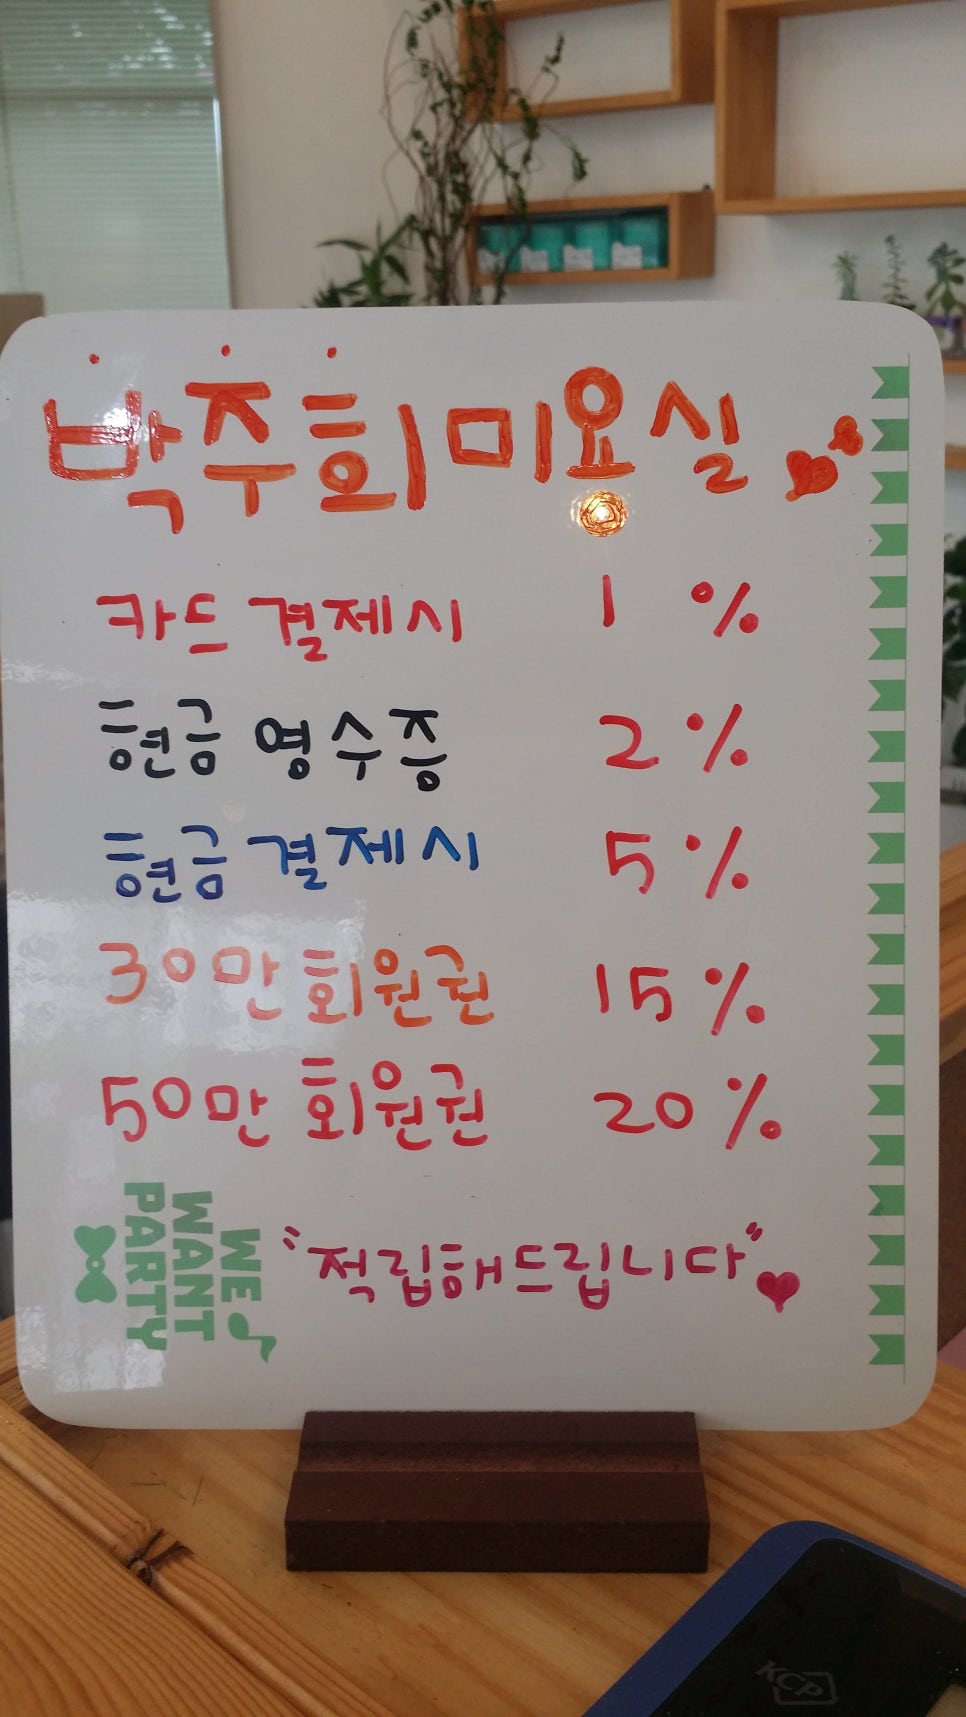 박주희 미요실
카드 결제시 1 %
현금 영수증 2 %
현금 결제시 5 %
30만 회원권 15 %
50만 회원권 20 %
"적립해드립니다"
WE
WANT
PARTY
KCP